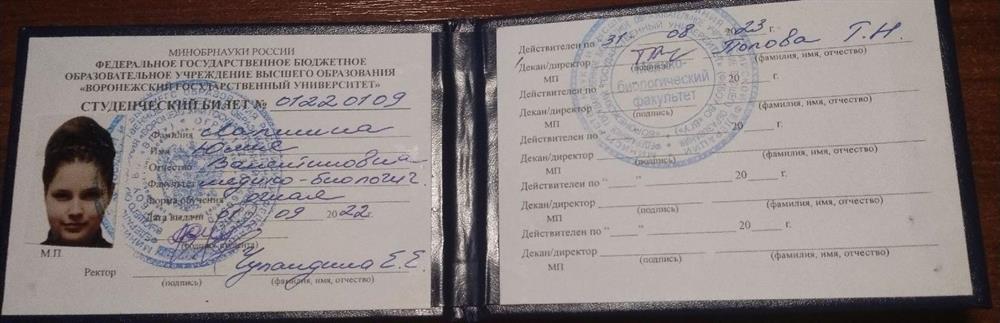 МИНОБРНАУКИ РОССИИ
ФЕДЕРАЛЬНОЕ ГОСУДАРСТВЕННОЕ БЮДЖЕТНОЕ
ОБРАЗОВАТЕЛЬНОЕ УЧРЕЖДЕНИЕ ВЫСШЕГО ОБРАЗОВАНИЯ
«ВОРОНЕЖСКИЙ ГОСУДАРСТВЕННЫЙ УНИВЕРСИТЕТ»
СТУДЕНЧЕСКИЙ БИЛЕТ № 01220109
Фамилия Лапшина
Имя Юлия
Отчество Валентиновна
Факультет медико-биологич.
Форма обучения очная
Дата выдачи 01 09 2022г.
(подпись студента)
М.П.
Ректор Чупандина Е.Е.
(подпись) (фамилия, имя, отчество)
Действителен по "31" 08 2023 г.
Декан/директор Попова Т.Н.
МП (подпись) (фамилия, имя, отчество)
Действителен по 20 г.
Декан/директор
МП (подпись) (фамилия, имя, отчество)
Действителен по 20 г.
Декан/директор
МП (подпись) (фамилия, имя, отчество)
Действителен по " " 20 г.
Декан/директор
МП (подпись) (фамилия, имя, отчество)
Действителен по " " 20 г.
Декан/директор
МП (подпись) (фамилия, имя, отчество)
медико-
биологический
факультет